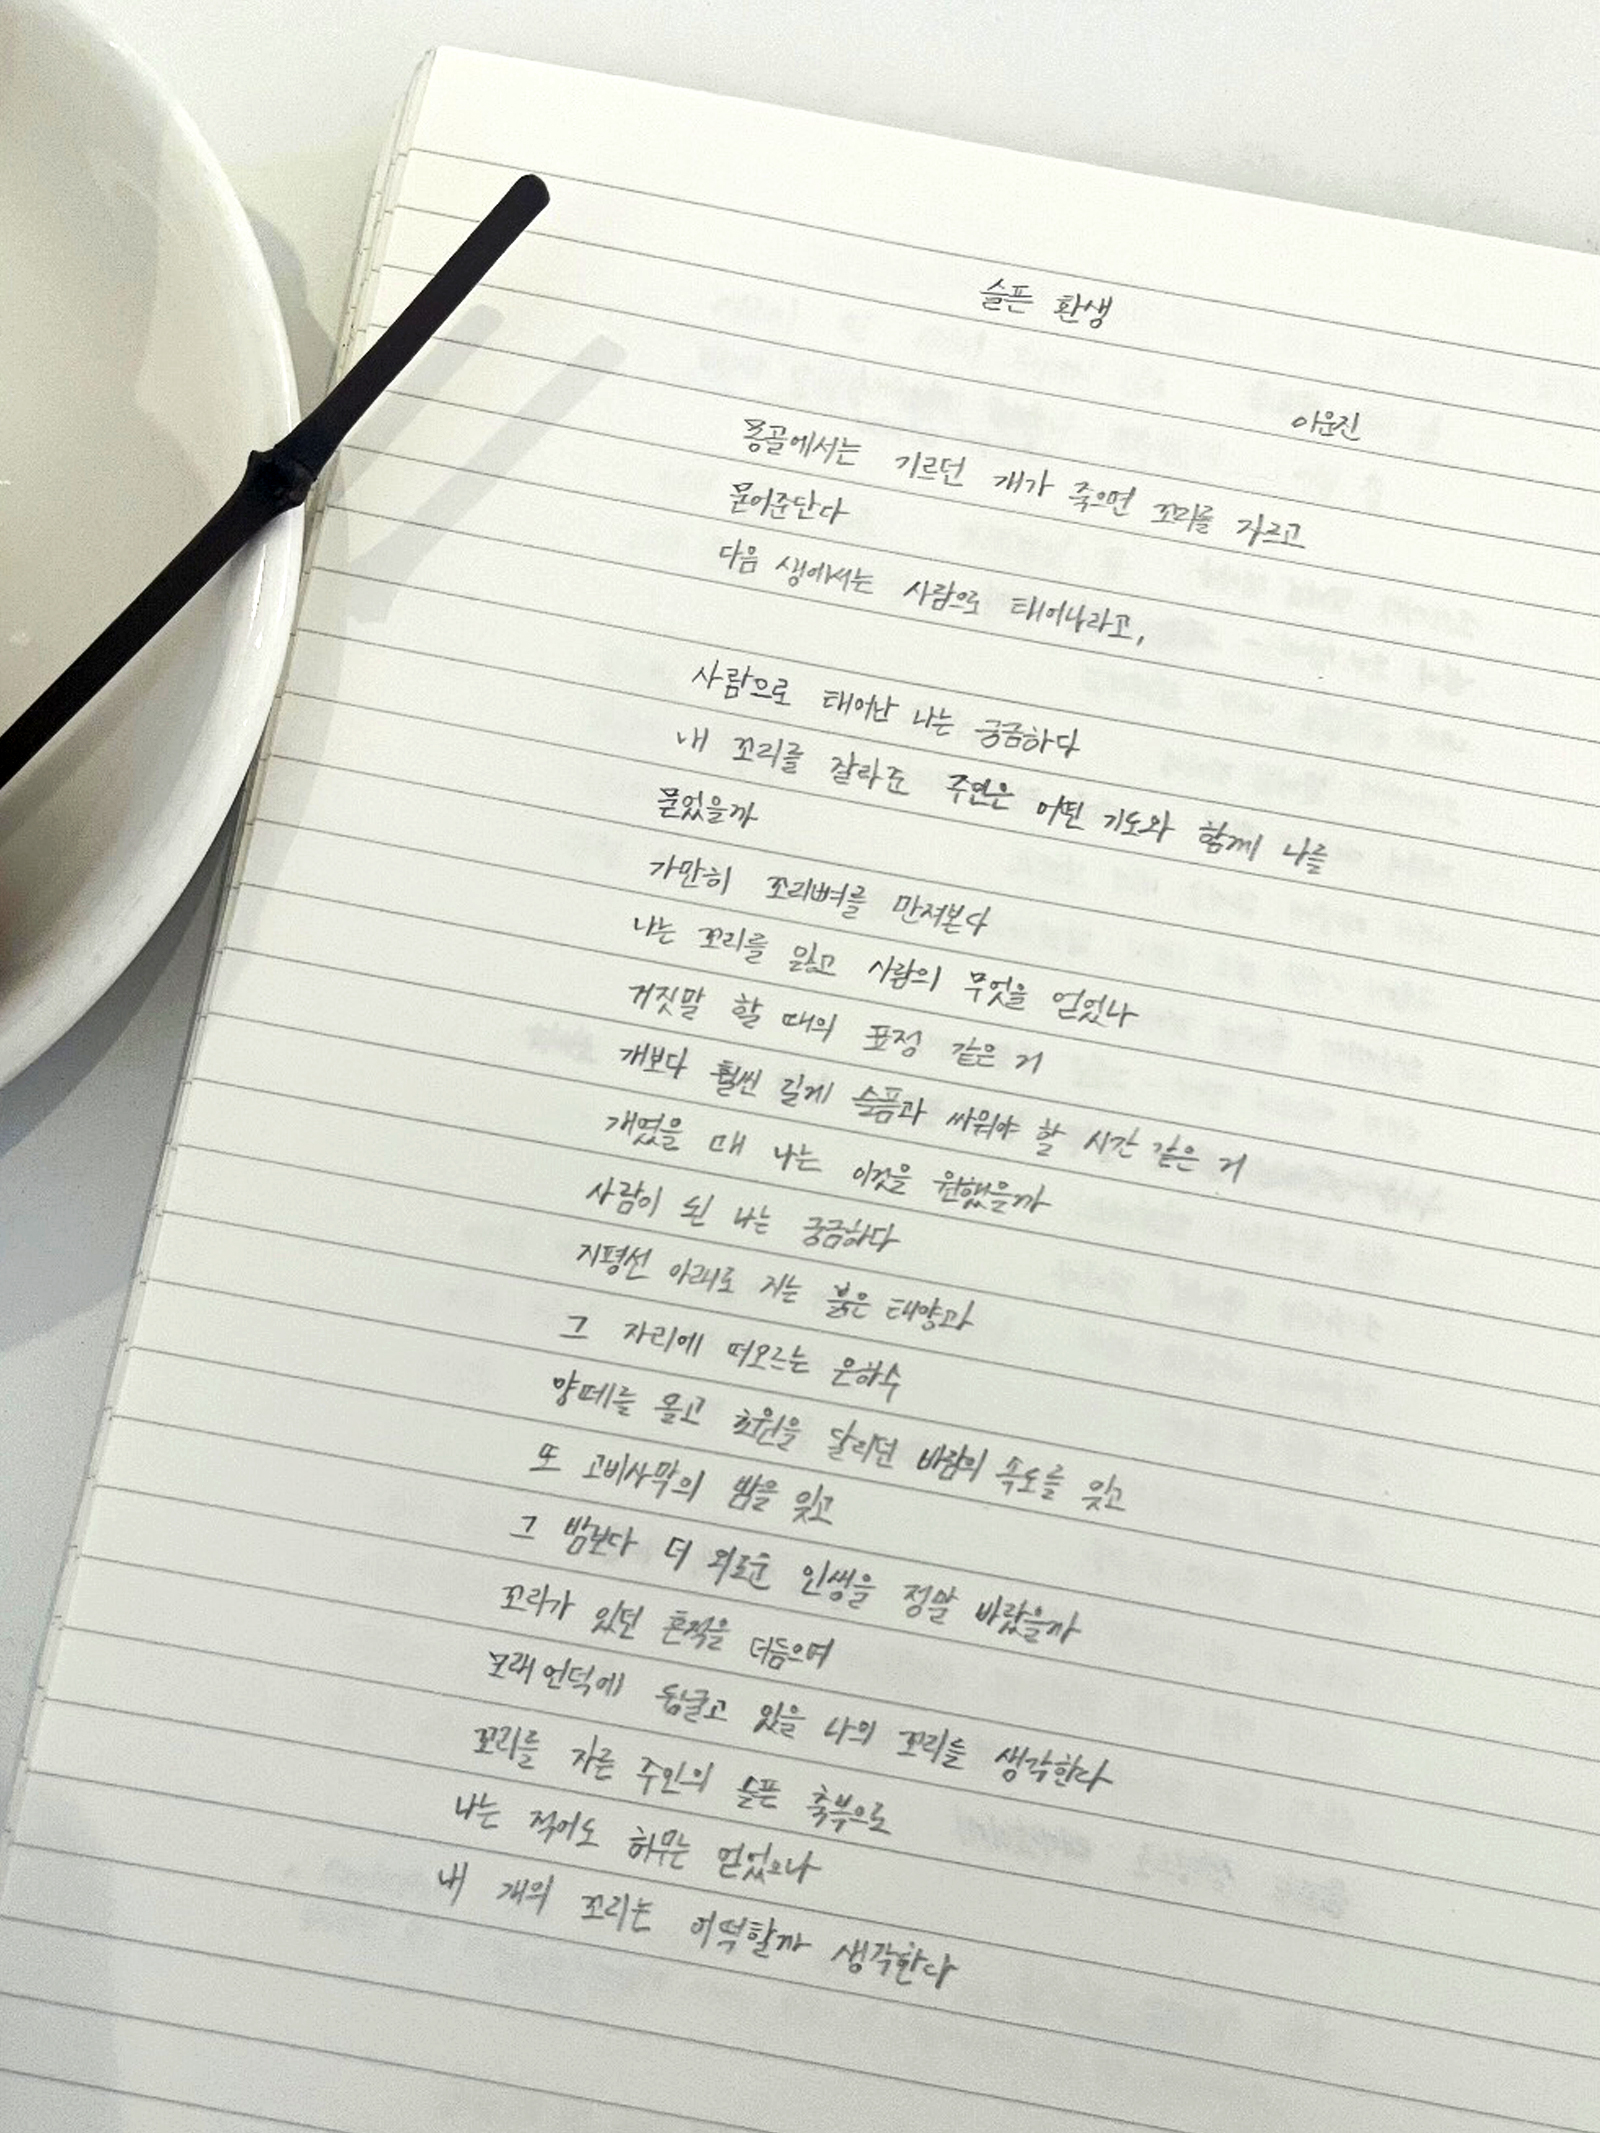 슬픈 환생
이운진
몽골에서는 기르던 개가 죽으면 꼬리를 자르고
묻어준단다
다음 생에서는 사람으로 태어나라고,
사람으로 태어난 나는 궁금하다
내 꼬리를 잘라준 주인은 어떤 기도와 함께 나를
묻었을까
가만히 꼬리뼈를 만져본다
나는 꼬리를 잃고 사람의 무엇을 얻었나
거짓말 할 때의 표정 같은 거
개보다 훨씬 길게 슬픔과 싸워야 할 시간 같은 거
개였을 때 나는 이것을 원했을까
사람이 된 나는 궁금하다
지평선 아래로 지는 붉은 태양과
그 자리에 떠오르는 은하수
양떼를 몰고 초원을 달리던 바람의 속도를 잊고
또 고비사막의 밤을 잊고
그 밤보다 더 외로운 인생을 정말 바랐을까
꼬리가 있던 흔적을 더듬으며
모래 언덕에 뒹굴고 있을 나의 꼬리를 생각한다
꼬리를 자른 주인의 슬픈 축복으로
나는 적어도 허무는 얻었으나
내 개의 꼬리는 어떡할까 생각한다